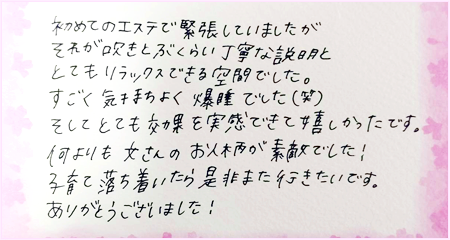 初めてのエステで緊張していましたが
それが吹きとぶくらい丁寧な説明と
とてもリラックスできる空間でした。
すごく気もちよく爆睡でした(笑)
そしてとても効果を実感できて嬉しかったです。
何よりも 文さんの お人柄が素敵でした!
子育て落ち着いたら是非また行きたいです。
ありがとうございました!